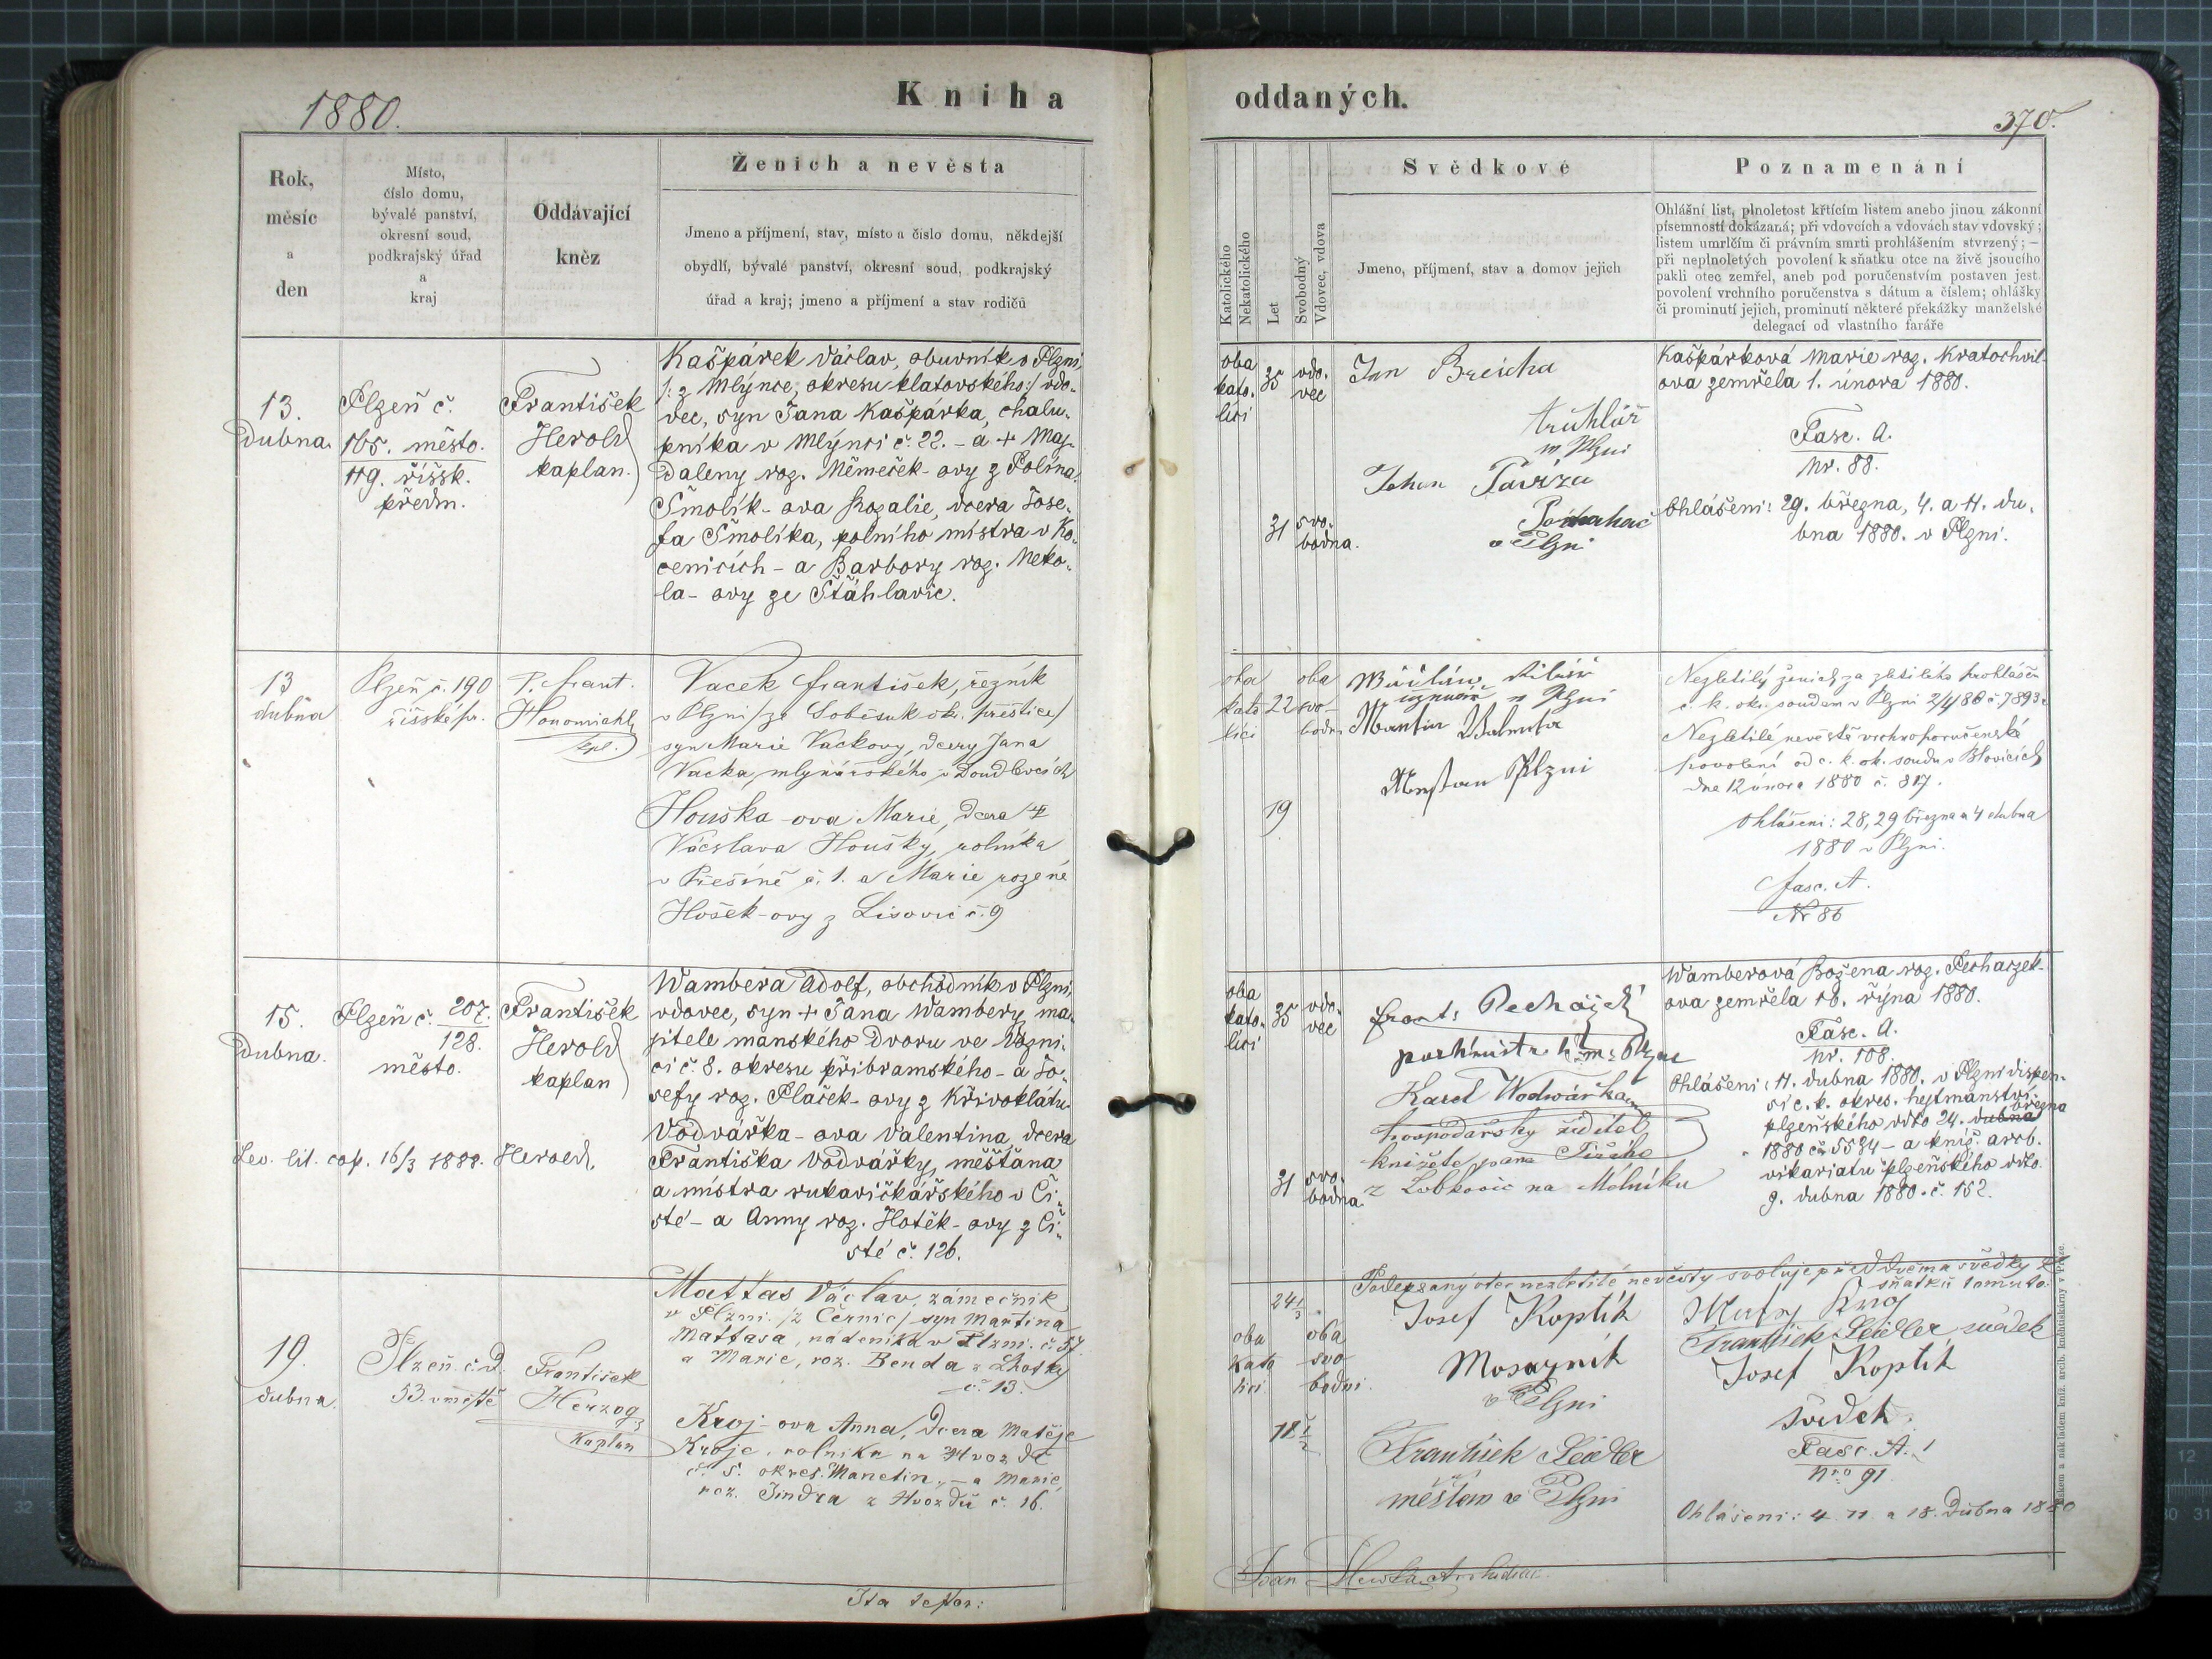 1880.
Kniha
oddaných.
370.
Rok,
měsíc
a
den
Místo,
číslo domu,
bývalé panství,
okresní soud,
podkrajský úřad
a
kraj
Oddávající
kněz
Ženich a nevěsta
Jmeno a příjmení, stav, místo a číslo domu, někdejší
obydlí, bývalé panství, okresní soud, podkrajský
úřad a kraj; jmeno a příjmení a stav rodičů
Katolického
Nekatolického
Let
Svobodný
Vdovec, vdova
Svědkové
Jmeno, příjmení, stav a domov jejich
Poznamenání
Ohlášní list, plnoletost křtícím listem anebo jinou zákonní
písemností dokázaná; při vdovcích a vdovách stav vdovský;
listem umrlčím či právním smrti prohlášením stvrzený; —
při neplnoletých povolení k sňatku otce na živě jsoucího
pakli otec zemřel, aneb pod poručenstvím postaven jest.
povolení vrchního poručenstva s dátum a číslem; ohlášky
či prominutí jejich, prominutí některé překážky manželské
delegací od vlastního faráře
13.
dubna.
Plzeň č.
165. město.
119. říšsk.
předm.
František
Herold
kaplan.
Kašpárek Václav, obuvník v Plzni,
/: z Mlýnce, okresu klatovského:/ vdo-
vec, syn Jana Kašpárka, chalu-
pníka v Mlýnci č. 22. - a + Maj-
daleny roz. Němeček-ovy z Polína.
Smolík-ova Rozalie, dcera Jose-
fa Smolíka, polního mistra v Ko-
cenicích - a Barbory roz. Neko-
la-ovy ze Šťáhlavic.
oba
kato-
líci
35
vdo-
vec
31
svo-
bodna.
Jan Breicha
truhlář
v Plzni
Johan
v Plzni
Kašpárková Marie roz. Kratochvíl-
ova zemřela 1. února 1880.
Fasc. A.
Nr. 88.
Ohlášeni: 29. března, 4. a 11. du-
bna 1880. v Plzni.
13
dubna
Plzeň č. 190
říšské př.
P. Frant.
Honomichl
kpl.
Vacek František, řezník
v Plzni /ze Soběsuk ok. přeštice/
syn Marie Vackovy, dcery Jana
Vacka, mlynářského v Doudlevcích
Houška-ova Marie, dcera +
Václava Houšky, rolníka
v Přešíně č. 1. a Marie rozené
Hošek-ovy z Lisovic č. 9
oba
kato
líci
22
oba
svo-
bodn.
19
v Plzni
Martin
Měšťan Plzni
Nezletilý ženich za zletilého prohlášen
c. k. okr. soudem v Plzni 2/4 80 č. 7893.
Nezletilé nevěstě vrchnoporučenské
povolení od c. k. ok. soudu v Blovicích
dne 12 února 1880 č. 817.
Ohlášeni: 28, 29 března a 4 dubna
1880 v Plzni.
Fasc. A.
Nr 86
15.
dubna.
Plzeň č. 207.
128.
město.
František
Herold
kaplan
Wambera Adolf, obchodník v Plzni,
vdovec, syn + Jana Wambery, ma-
jitele manského dvoru ve Vozni-
ci č. 8. okresu příbramského - a Jo-
sefy roz. Plaček-ovy z Křivoklátu.
Vodvářka-ova Valentina, dcera
Františka Vodvářky, měšťana
a mistra rukavičkářského v Či-
sté - a Anny roz. Hoték-ovy z Či-
sté č. 126.
Herold.
oba
kato-
líci
35
vdo-
vec
31
svo-
bodna.
Frant. Pecháček
Karel Wodwárka
hospodářský ředitel
knížete pana
z Lobkovic na Mělníku
Wamberová Božena roz. Pecháczek-
ova zemřela 18. října 1880.
Fasc. A.
Nr. 108.
Ohlášeni: 11. dubna 1880. v Plzni dispen-
sí c. k. okres. hejtmanství
plzeňského ddto 24. dubna března
1880 č. 5534 - a kníž. arcb.
vikariatu plzeňského ddto.
9. dubna 1880. č. 152.
19.
dubna.
Plzeň č. D.
53. v městě
František
Herzog
Kaplan
Mattas Václav, zámečník
v Plzni. /z Černic/ syn Martina
Mattasa, nádeníka v Plzni. č. 57
a Marie, roz. Benda z Lhotky
č. 13.
Kroj-ova Anna, dcera Matěje
Kroje, rolníka na Hvozdě
č. 5. okres. Manetin, - a Marie,
roz. Jindra z Hvozdů č. 16.
24 1/3
oba
kato
líci
oba
svo
bodni.
18 1/2
Podepsaný otec nezletilé nevěsty svoluje před dvěma svědky k
sňatku tomuto.
Josef Koptik
Mosazník
v Plzni
František Seidler
měšťan v Plzni
Kroj
František Seidler, svědek
Josef Koptik
svědek.
Fasc. A.
Nro 91.
Ohlášeni: 4. 11. a 18. Dubna 1880